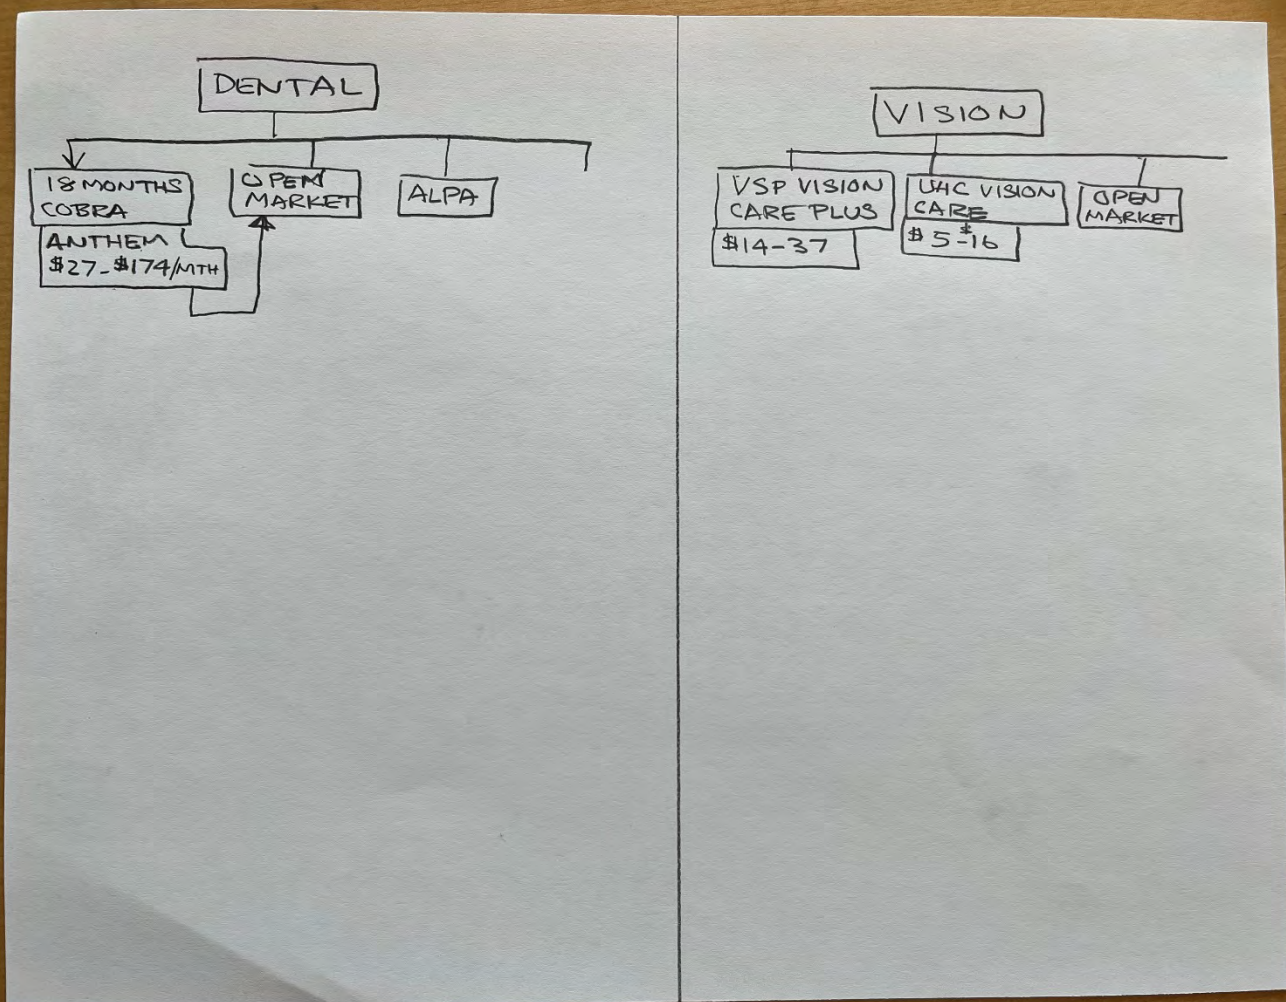 DENTAL
18 MONTHS
COBRA
ANTHEM
$27-$174/MTH
OPEN
MARKET
ALPA
VISION
VSP VISION
CARE PLUS
$14-37
UHC VISION
CARE
$5-$16
OPEN
MARKET